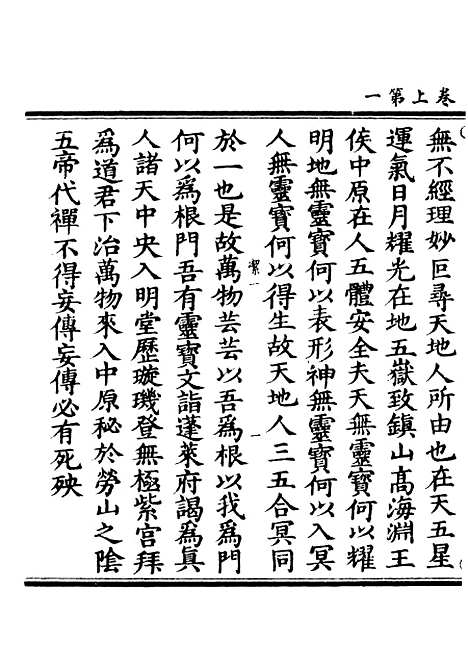 卷上第一
無不經理妙叵尋天地人所由也在天五星
運氣日月耀光在地五嶽致鎮山髙海淵王
侯中原在人五體安全夫天無靈寳何以耀
明地無靈寳何以表形神無靈寳何以入冥
人無靈寳何以得生故天地人三五合冥同
絜一
一
於一也是故萬物芸芸以吾爲根以我爲門
何以爲根門吾有靈寳文詣蓬萊府謁爲真
人諸天中央入明堂歷璇璣登無極紫宫拜
爲道君下治萬物來入中原秘於勞山之陰
五帝代禪不得妄傳妄傳必有死殃